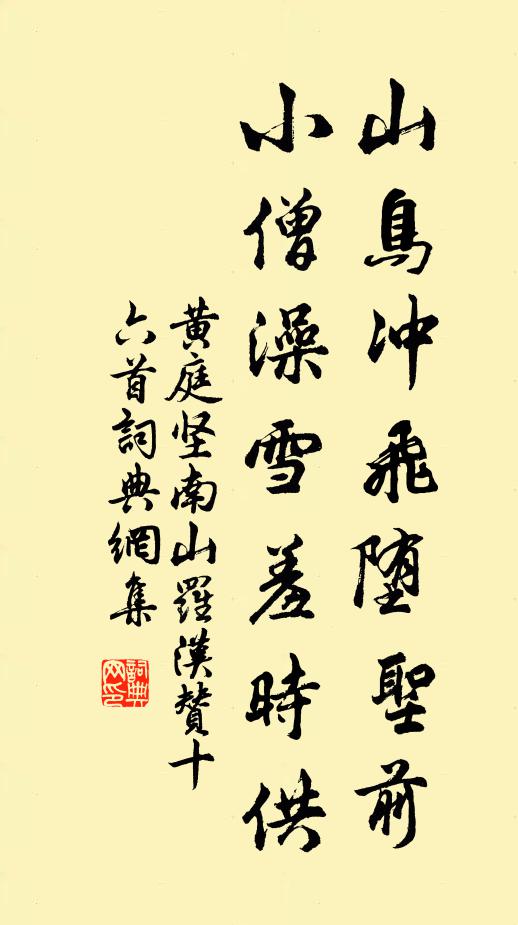 山鳥冲飛堕聖前
小僧澡雪羞時供
黄庭坚南山羅漢贊十
六首詞典網集
詞典
网印